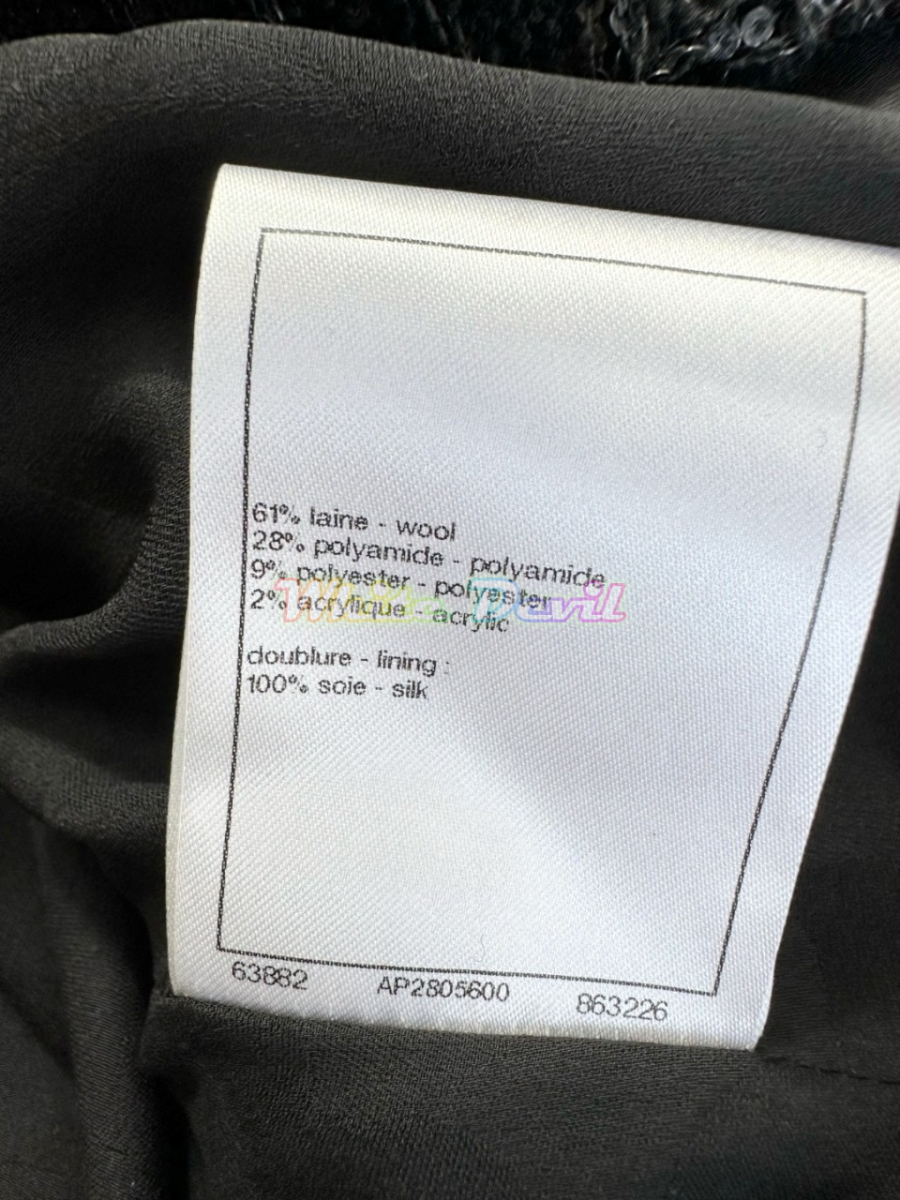 61% laine - wool
28% polyamide - polyamide
9% polyester - polyester
2% acrylique - acrylic
doublure - lining :
100% soie - silk
63882 AP2805600 863226